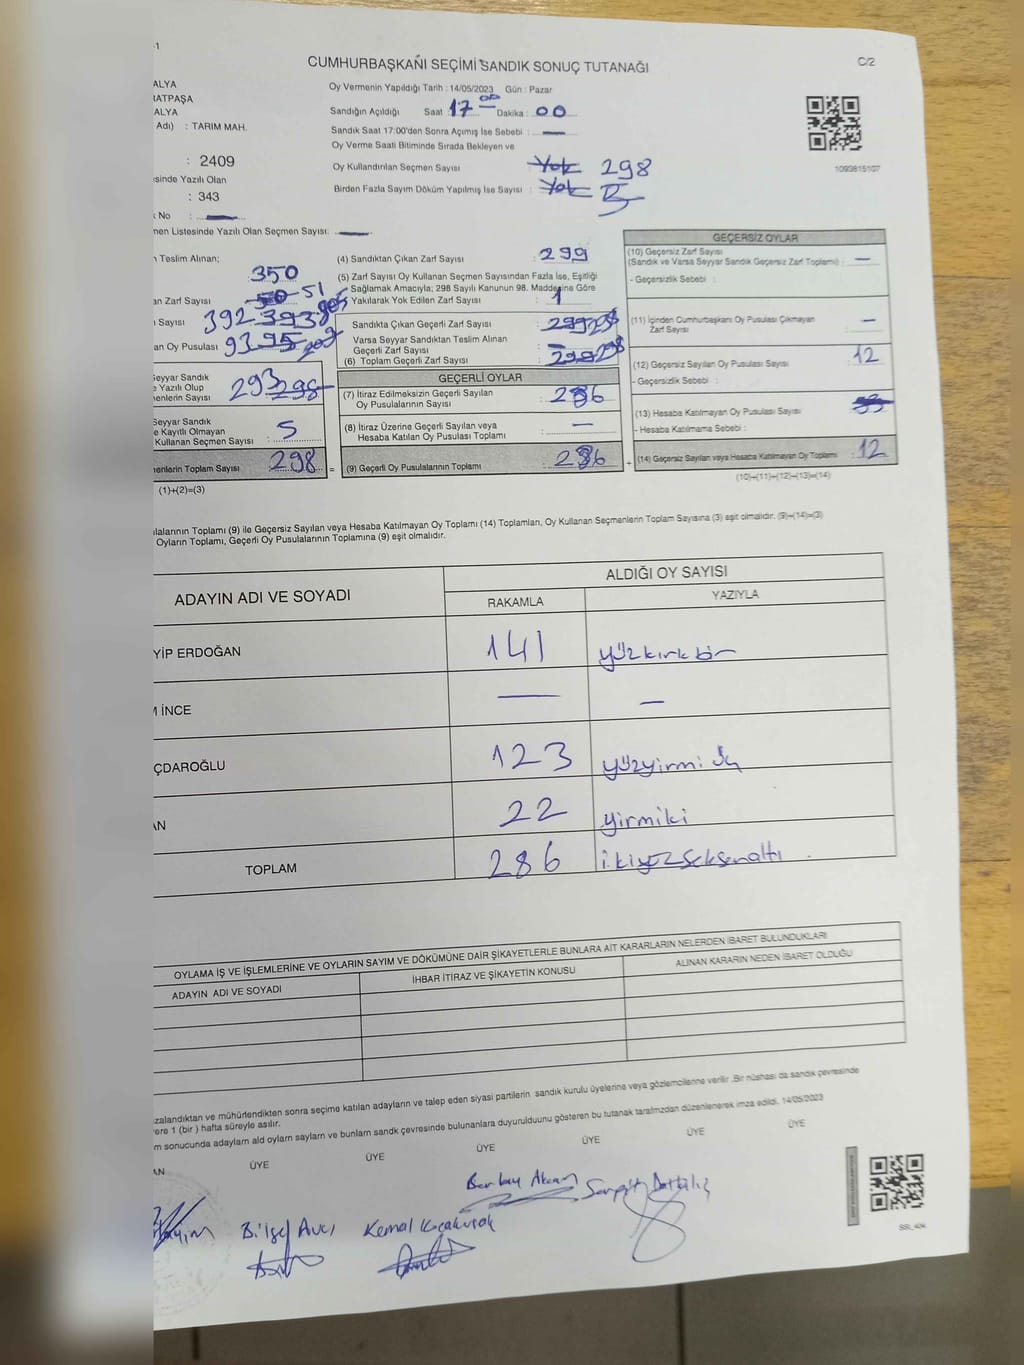 -1
CUMHURBAŞKANI SEÇİMİ SANDIK SONUÇ TUTANAĞI
C/2
ALYA
RATPAŞA
ALYA
Adı) : TARIM MAH.
: 2409
sinde Yazılı Olan
: 343
k No : —
men Listesinde Yazılı Olan Seçmen Sayısı: —
Oy Vermenin Yapıldığı Tarih : 14/05/2023 Gün : Pazar
Sandığın Açıldığı Saat 17 00 Dakika : 00
Sandık Saat 17:00'den Sonra Açımış İse Sebebi : —
Oy Verme Saati Bitiminde Sırada Bekleyen ve
Oy Kullandırılan Seçmen Sayısı : Yok 298
Birden Fazla Sayım Döküm Yapılmış İse Sayısı : Yok
1093815107
n Teslim Alınan;
350
an Zarf Sayısı 50 51
ı Sayısı 392 393
an Oy Pusulası 93 95
Seyyar Sandık
e Yazılı Olup
menlerin Sayısı 293 298
Seyyar Sandık
e Kayıtlı Olmayan
Kullanan Seçmen Sayısı : 5
menlerin Toplam Sayısı 298
(1)+(2)=(3)
(4) Sandıktan Çıkan Zarf Sayısı : 299
(5) Zarf Sayısı Oy Kullanan Seçmen Sayısından Fazla İse, Eşitliği
Sağlamak Amacıyla; 298 Sayılı Kanunun 98. Maddesine Göre
Yakılarak Yok Edilen Zarf Sayısı : 1
Sandıkta Çıkan Geçerli Zarf Sayısı : 299 298
Varsa Seyyar Sandıktan Teslim Alınan
Geçerli Zarf Sayısı : —
(6) Toplam Geçerli Zarf Sayısı : 299 298
GEÇERLİ OYLAR
(7) İtiraz Edilmeksizin Geçerli Sayılan
Oy Pusulalarının Sayısı : 286
(8) İtiraz Üzerine Geçerli Sayılan veya
Hesaba Katılan Oy Pusulası Toplamı : —
= (9) Geçerli Oy Pusulalarının Toplamı : 286 +
GEÇERSİZ OYLAR
(10) Geçersiz Zarf Sayısı
(Sandık ve Varsa Seyyar Sandık Geçersiz Zarf Toplamı) : —
- Geçersizlik Sebebi :
(11) İçinden Cumhurbaşkanı Oy Pusulası Çıkmayan
Zarf Sayısı : —
(12) Geçersiz Sayılan Oy Pusulası Sayısı : 12
- Geçersizlik Sebebi :
(13) Hesaba Katılmayan Oy Pusulası Sayısı
- Hesaba Katılmama Sebebi :
(14) Geçersiz Sayılan veya Hesaba Katılmayan Oy Toplamı : 12
(10)+(11)+(12)+(13)=(14)
ulalarının Toplamı (9) ile Geçersiz Sayılan veya Hesaba Katılmayan Oy Toplamı (14) Toplamları, Oy Kullanan Seçmenlerin Toplam Sayısına (3) eşit olmalıdır. (9)+(14)=(3)
Oyların Toplamı, Geçerli Oy Pusulalarının Toplamına (9) eşit olmalıdır.
ADAYIN ADI VE SOYADI
ALDIĞI OY SAYISI
RAKAMLA YAZIYLA
YİP ERDOĞAN 141 yüzkırkbir
M İNCE — —
ÇDAROĞLU 123 yüzyirmi üç
AN 22 yirmiki
TOPLAM 286 ikiyüzseksenaltı
OYLAMA İŞ VE İŞLEMLERİNE VE OYLARIN SAYIM VE DÖKÜMÜNE DAİR ŞİKAYETLERLE BUNLARA AİT KARARLARIN NELERDEN İBARET BULUNDUKLARI
ADAYIN ADI VE SOYADI
İHBAR İTİRAZ VE ŞİKAYETİN KONUSU
ALINAN KARARIN NEDEN İBARET OLDUĞU
zalandıktan ve mühürlendikten sonra seçime katılan adayların ve talep eden siyasi partilerin sandık kurulu üyelerine veya gözlemcilerine verilir .Bir nüshası da sandık çevresinde
ere 1 (bir ) hafta süreyle asılır.
m sonucunda adayların ald oyların sayların ve bunların sandk çevresinde bulunanlara duyurulduunu gösteren bu tutanak tarafmzdan düzenlenerek imza edildi. 14/05/2023
AN ÜYE ÜYE ÜYE ÜYE ÜYE ÜYE
Bilgel Avcı Kemal Berkay Akcan